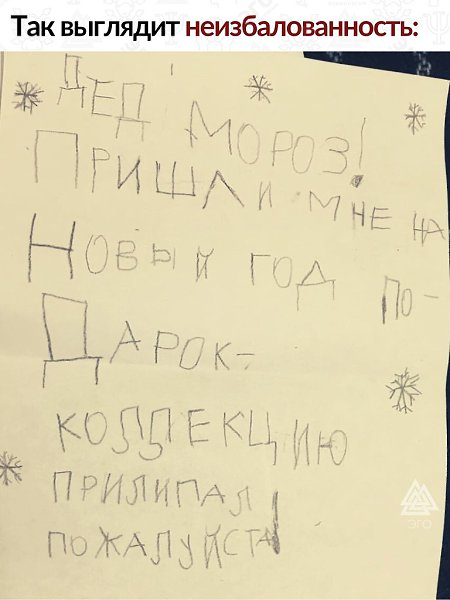 Так выглядит неизбалованность:
ДЕД МОРОЗ!
ПРИШЛИ МНЕ НА
НОВЫЙ ГОД ПО-
ДАРОК-
КОЛЛЕКЦИЮ
ПРИЛИПАЛ
ПОЖАЛУЙСТА!
ЭГО